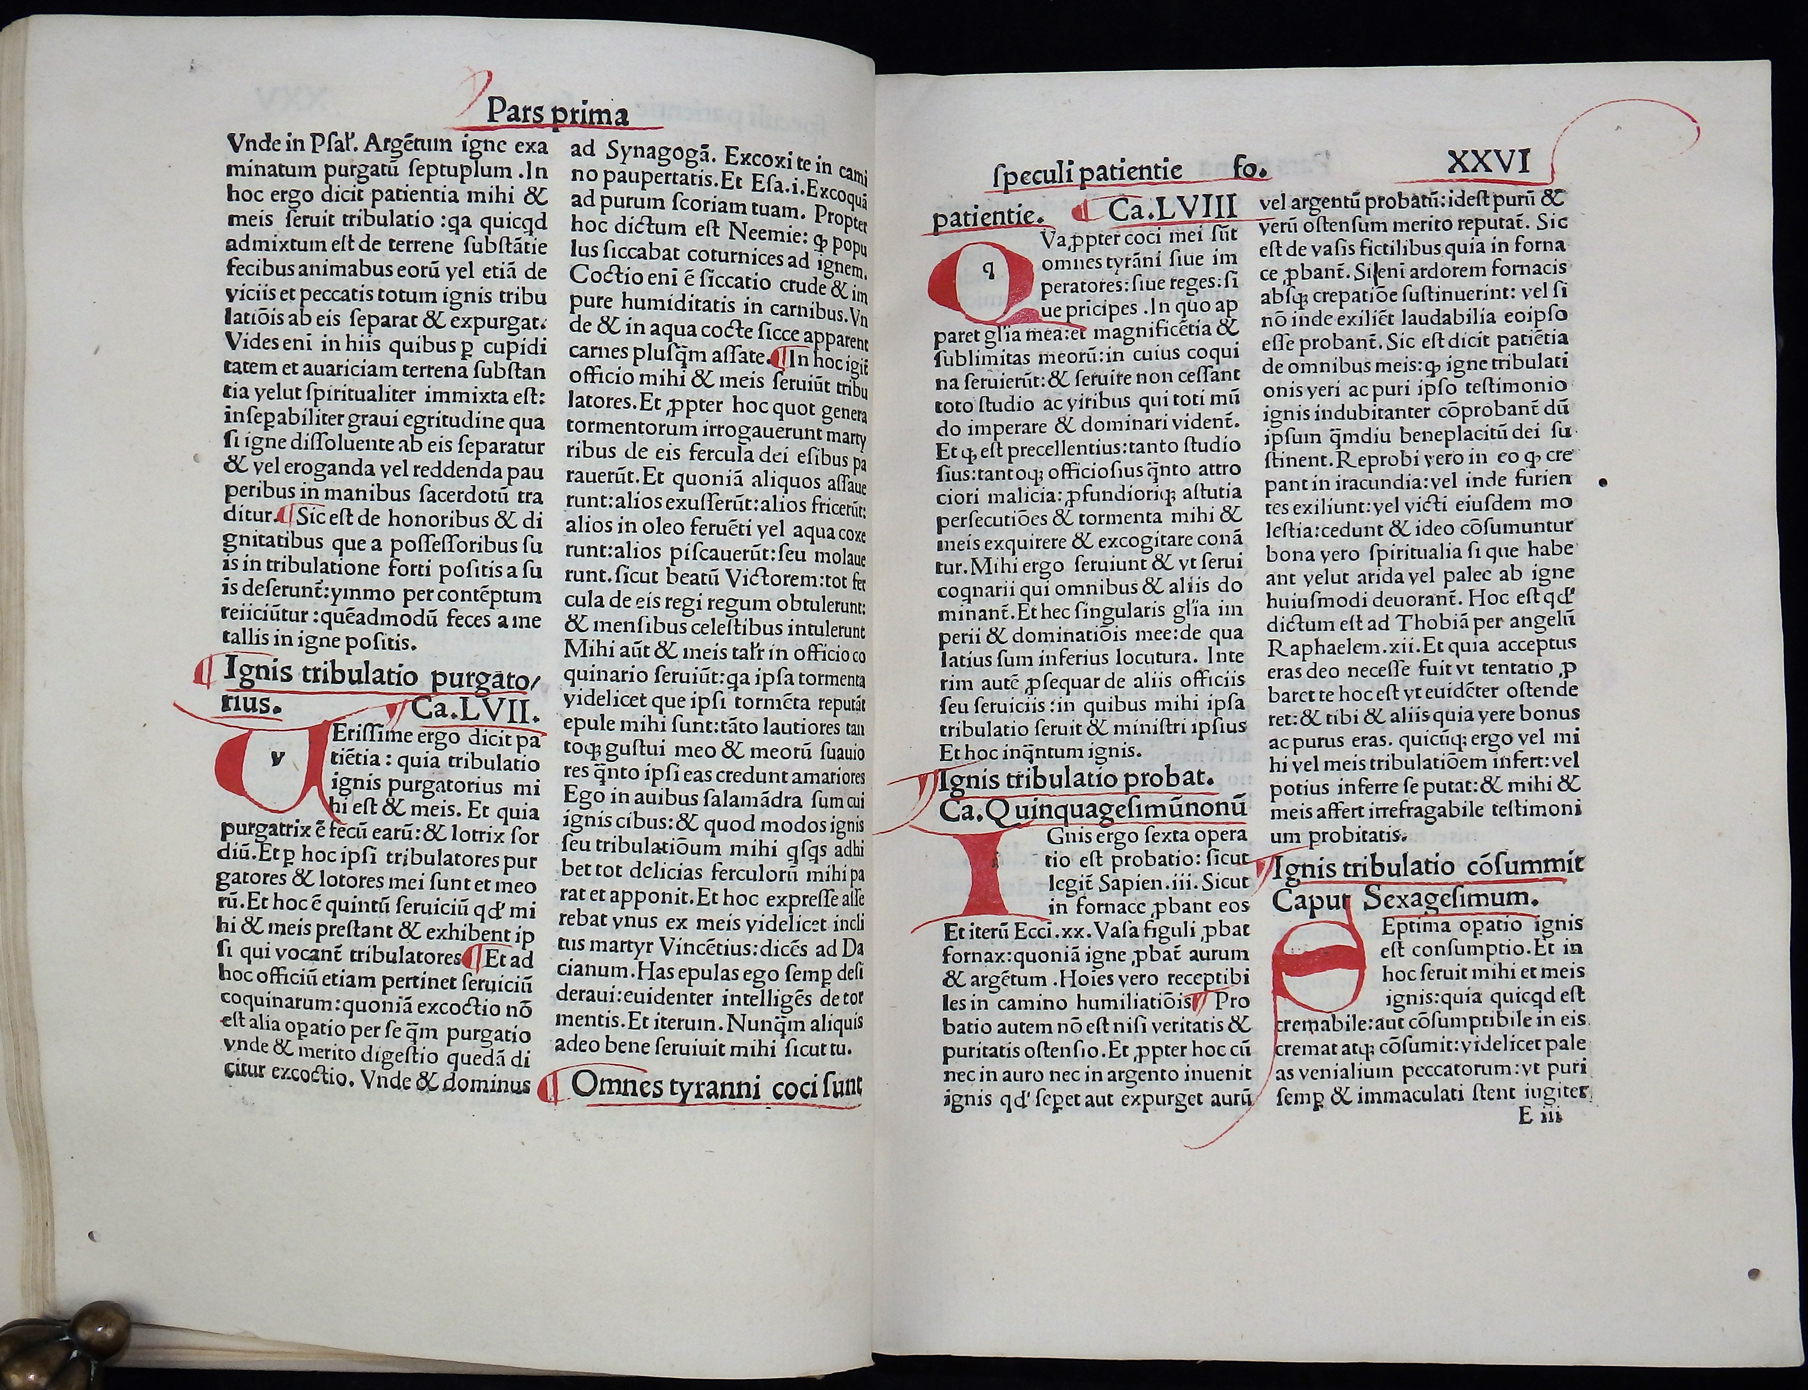 Pars prima
Vnde in Pſal'. Argētum igne exa
minatum purgatū ſeptuplum .In
hoc ergo dicit patientia mihi &
meis ſeruit tribulatio :qa quicqd
admixtum eſt de terrene ſubſtātie
fecibus animabus eorū vel etiā de
viciis et peccatis totum ignis tribu
latiōis ab eis ſeparat & expurgat.
Vides eni in hiis quibus ꝑ cupidi
tatem et auariciam terrena ſubſtan
tia velut ſpiritualiter immixta eſt:
inſepabiliter graui egritudine qua
ſi igne diſſoluente ab eis ſeparatur
& vel eroganda vel reddenda pau
peribus in manibus ſacerdotū tra
ditur.¶ Sic eſt de honoribus & di
gnitatibus que a poſſeſſoribus ſu
is in tribulatione forti poſitis a ſu
is deſerunt̄:ymmo per contēptum
reiiciūtur :quēadmodū feces a me
tallis in igne poſitis.
¶ Ignis tribulatio purgato/
rius. ¶ Ca.LVII.
v Eriſſime ergo dicit pa
tiētia : quia tribulatio
ignis purgatorius mi
hi eſt & meis. Et quia
purgatrix ē fecū earū:& lotrix ſor
diū.Et ꝑ hoc ipſi tribulatores pur
gatores & lotores mei ſunt et meo
rū. Et hoc ē quintū ſeruiciū qd' mi
hi & meis preſtant & exhibent ip
ſi qui vocant̄ tribulatores ¶ Et ad
hoc officiū etiam pertinet ſeruiciū
coquinarum:quoniā excoctio nō
eſt alia opatio per ſe q̄m purgatio
vnde & merito digeſtio quedā di
citur excoctio. Vnde & dominus
ad Synagogā. Excoxi te in cami
no paupertatis.Et Eſa.i.Excoquā
ad purum ſcoriam tuam. Propter
hoc dictum eſt Neemie: ꝙ popu
lus ſiccabat coturnices ad ignem.
Coctio eni ē ſiccatio crude & im
pure humiditatis in carnibus.Vn
de & in aqua cocte ſicce apparent
carnes pluſq̄m aſſate.¶ In hoc igit̄
officio mihi & meis ſeruiūt tribu
latores.Et ꝓpter hoc quot genera
tormentorum irrogauerunt marty
ribus de eis fercula dei eſibus pa
rauerūt.Et quoniā aliquos aſſaue
runt:alios exuſſerūt:alios fricerūt:
alios in oleo feruēti vel aqua coxe
runt:alios piſcauerūt:ſeu molaue
runt.ſicut beatū Victorem:tot fer
cula de eis regi regum obtulerunt:
& menſibus celeſtibus intulerunt
Mihi aūt & meis tal'r in officio co
quinario ſeruiūt:qa ipſa tormenta
videlicet que ipſi tormēta reputāt
epule mihi ſunt:tāto lautiores tan
toqꝫ guſtui meo & meorū ſuauio
res q̄nto ipſi eas credunt amariores
Ego in auibus ſalamādra ſum cui
ignis cibus:& quod modos ignis
ſeu tribulatiōum mihi qſqs adhi
bet tot delicias ferculorū mihi pa
rat et apponit.Et hoc expreſſe aſſe
rebat vnus ex meis videlicet incli
tus martyr Vincētius:dicēs ad Da
cianum.Has epulas ego ſemꝑ deſi
deraui:euidenter intelligēs de tor
mentis.Et iterum. Nunq̄m aliquis
adeo bene ſeruiuit mihi ſicut tu.
¶ Omnes tyranni coci ſunt
ſpeculi patientie fo. XXVI
patientie. ¶ Ca.LVIII
q Va,ꝓpter coci mei ſūt
omnes tyrāni ſiue im
peratores:ſiue reges:ſi
ue pricipes .In quo ap
paret gl'ia mea:et magnificētia &
ſublimitas meorū:in cuius coqui
na ſeruierūt:& ſeruire non ceſſant
toto ſtudio ac viribus qui toti mū
do imperare & dominari vident̄.
Et ꝙ eſt precellentius:tanto ſtudio
ſius:tantoqꝫ officioſius q̄nto attro
ciori malicia:ꝓfundioriqꝫ aſtutia
perſecutiōes & tormenta mihi &
meis exquirere & excogitare conā
tur. Mihi ergo ſeruiunt & vt ſerui
coqnarii qui omnibus & aliis do
minant̄.Et hec ſingularis gl'ia im
perii & dominatiōis mee:de qua
latius ſum inferius locutura. Inte
rim autē ꝓſequar de aliis officiis
ſeu ſeruiciis :in quibus mihi ipſa
tribulatio ſeruit & miniſtri ipſius
Et hoc inq̄ntum ignis.
¶ Ignis tribulatio probat.
Ca.Quinquageſimūnonū
I Gnis ergo ſexta opera
tio eſt probatio: ſicut
legit̄ Sapien.iii. Sicut
in fornace ꝓbant eos
Et iterū Ecci.xx. Vaſa figuli ꝓbat
fornax:quoniā igne ꝓbat̄ aurum
& argētum .Hoies vero receptibi
les in camino humiliatiōis ¶ Pro
batio autem nō eſt niſi veritatis &
puritatis oſtenſio.Et ꝓpter hoc cū
nec in auro nec in argento inuenit
ignis qd' ſepet aut expurget aurū
vel argentū probatū:ideſt purū &
verū oſtenſum merito reputat̄. Sic
eſt de vaſis fictilibus quia in forna
ce ꝓbant̄. Si eni ardorem fornacis
abſqꝫ crepatiōe ſuſtinuerint: vel ſi
nō inde exiliēt laudabilia eoipſo
eſſe probant̄. Sic eſt dicit patiētia
de omnibus meis:ꝙ igne tribulati
onis veri ac puri ipſo teſtimonio
ignis indubitanter cōprobant̄ dū
ipſum q̄mdiu beneplacitū dei ſu
ſtinent. Reprobi vero in eo ꝙ cre
pant in iracundia:vel inde furien
tes exiliunt:vel victi eiuſdem mo
leſtia:cedunt & ideo cōſumuntur
bona vero ſpiritualia ſi que habe
ant velut arida vel palee ab igne
huiuſmodi deuorant̄. Hoc eſt qd'
dictum eſt ad Thobiā per angelū
Raphaelem.xii. Et quia acceptus
eras deo neceſſe fuit vt tentatio ꝓ
baret te hoc eſt vt euidēter oſtende
ret:& tibi & aliis quia vere bonus
ac purus eras. quicūqꝫ ergo vel mi
hi vel meis tribulatiōem infert:vel
potius inferre ſe putat:& mihi &
meis affert irrefragabile teſtimoni
um probitatis.
¶ Ignis tribulatio cōſummit
Caput Sexageſimum.
Eptima opatio ignis
eſt conſumptio.Et in
hoc ſeruit mihi et meis
ignis:quia quicqd eſt
cremabile:aut cōſumptibile in eis
cremat atqꝫ cōſumit:videlicet pale
as venialium peccatorum:vt puri
ſemꝑ & immaculati ſtent iugiter
E iii